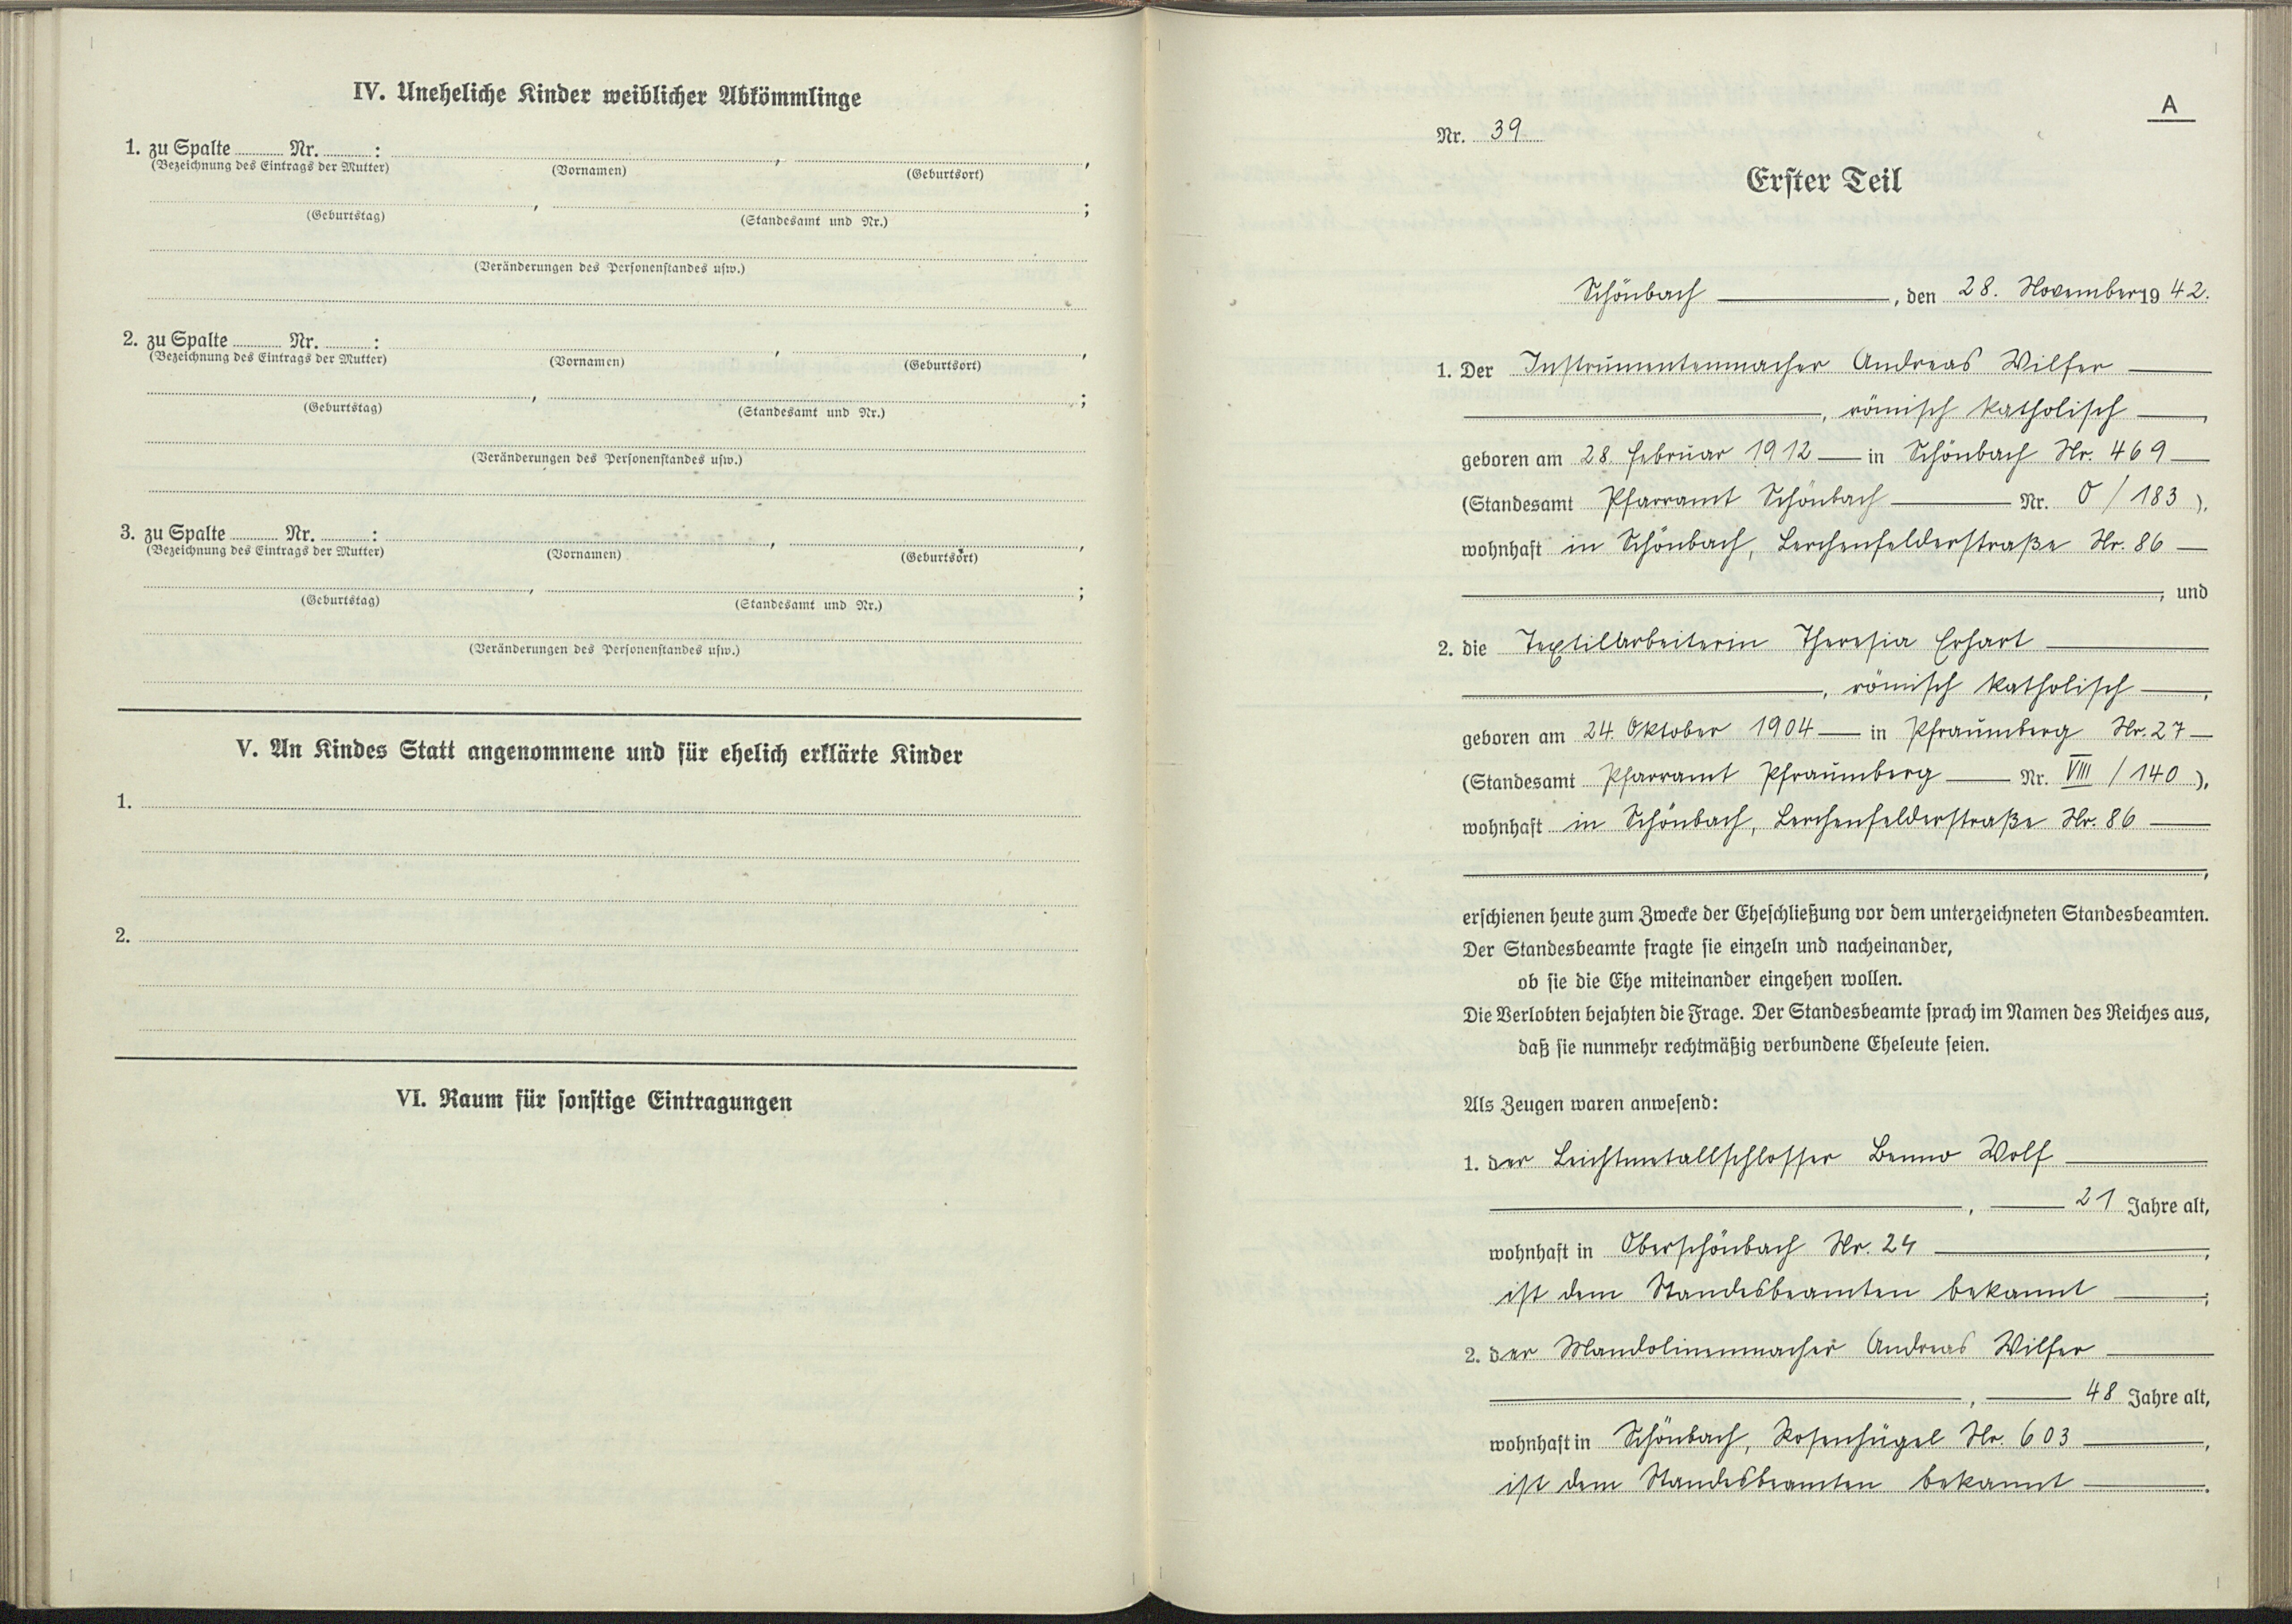 IV. Uneheliche Kinder weiblicher Abkömmlinge
1. zu Spalte ........ Nr. ........ :
(Bezeichnung des Eintrags der Mutter) (Vornamen) , (Geburtsort) ,
(Geburtstag) , (Standesamt und Nr.) ;
(Veränderungen des Personenstandes usw.)
2. zu Spalte ........ Nr. ........ :
(Bezeichnung des Eintrags der Mutter) (Vornamen) , (Geburtsort) ,
(Geburtstag) , (Standesamt und Nr.) ;
(Veränderungen des Personenstandes usw.)
3. zu Spalte ........ Nr. ........ :
(Bezeichnung des Eintrags der Mutter) (Vornamen) , (Geburtsort) ,
(Geburtstag) , (Standesamt und Nr.) ;
(Veränderungen des Personenstandes usw.)
V. An Kindes Statt angenommene und für ehelich erklärte Kinder
1.
2.
VI. Raum für sonstige Eintragungen
A
Nr. 39
Erster Teil
Schönbach, den 28. November 1942.
1. Der Instrumentenmacher Andreas Wilfer
, römisch katholisch ,
geboren am 28. Februar 1912 in Schönbach Nr. 469
(Standesamt Pfarramt Schönbach Nr. O / 183 ),
wohnhaft in Schönbach, Lerchenfelderstraße Nr. 86
, und
2. die Textilarbeiterin Theresia Erhart
, römisch katholisch ,
geboren am 24. Oktober 1904 in Pfraumberg Nr. 27
(Standesamt Pfarramt Pfraumberg Nr. VIII / 140 ),
wohnhaft in Schönbach, Lerchenfelderstraße Nr. 86
,
erschienen heute zum Zwecke der Eheschließung vor dem unterzeichneten Standesbeamten.
Der Standesbeamte fragte sie einzeln und nacheinander,
ob sie die Ehe miteinander eingehen wollen.
Die Verlobten bejahten die Frage. Der Standesbeamte sprach im Namen des Reiches aus,
daß sie nunmehr rechtmäßig verbundene Eheleute seien.
Als Zeugen waren anwesend:
1. der Leichtmetallschlosser Benno Wolf
, 21 Jahre alt,
wohnhaft in Oberschönbach Nr. 24 ,
ist dem Standesbeamten bekannt ;
2. der Mandolinenmacher Andreas Wilfer
, 48 Jahre alt,
wohnhaft in Schönbach, Rosenhügel Nr. 603 ,
ist dem Standesbeamten bekannt .